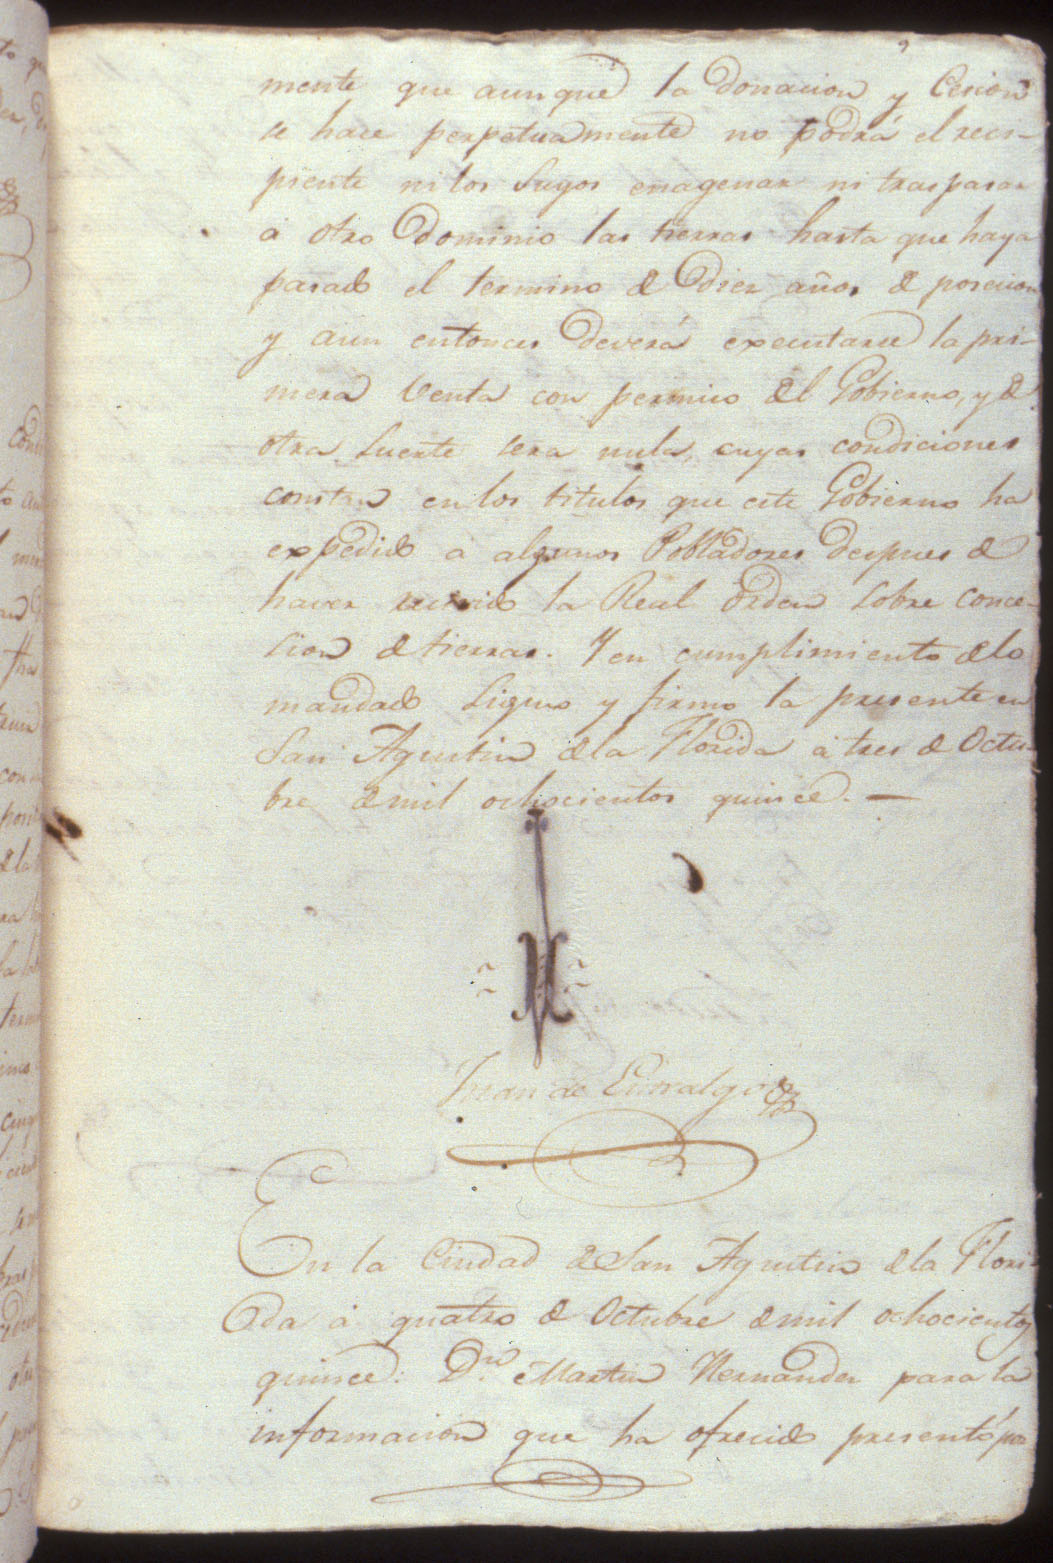 mente que aunque la donacion y Cesion
se hace perpetuamente no podrá el reci-
piente ni los Suyos enagenar ni traspasar
á otro dominio las tierras hasta que haya
pasado el termino de diez años de posecion
y aun entonces deverá executarse la pri-
mera Venta con permiso del Gobierno, y de
otra Suerte sera nula, cuyas condiciones
constan en los titulos que este Gobierno ha
expedido a algunos Pobladores despues de
haver recivido la Real orden sobre conce-
sion de tierras. Y en cumplimiento de lo
mandado Signo y firmo la presente en
San Agustin de la Florida á tres de Octu-
bre de mil ochocientos quince. —
Juan de Entralgo
En la Ciudad de San Agustin de la Flori-
da á quatro de Octubre de mil ochocientos
quince: Dn. Martin Hernandez para la
informacion que ha ofrecido presentó por